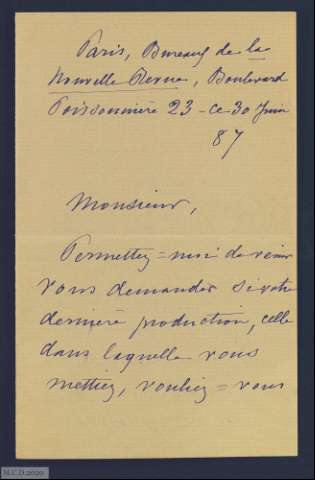 Paris, Bureaux de la
Nouvelle Revue, Boulevard
Poissonnière 23 - ce 30 Juin
87
Monsieur,
Permettez=moi de venir
vous demander si votre
dernière production, celle
dans laquelle vous
mettiez, vouliez=vous
M.C.D 2020